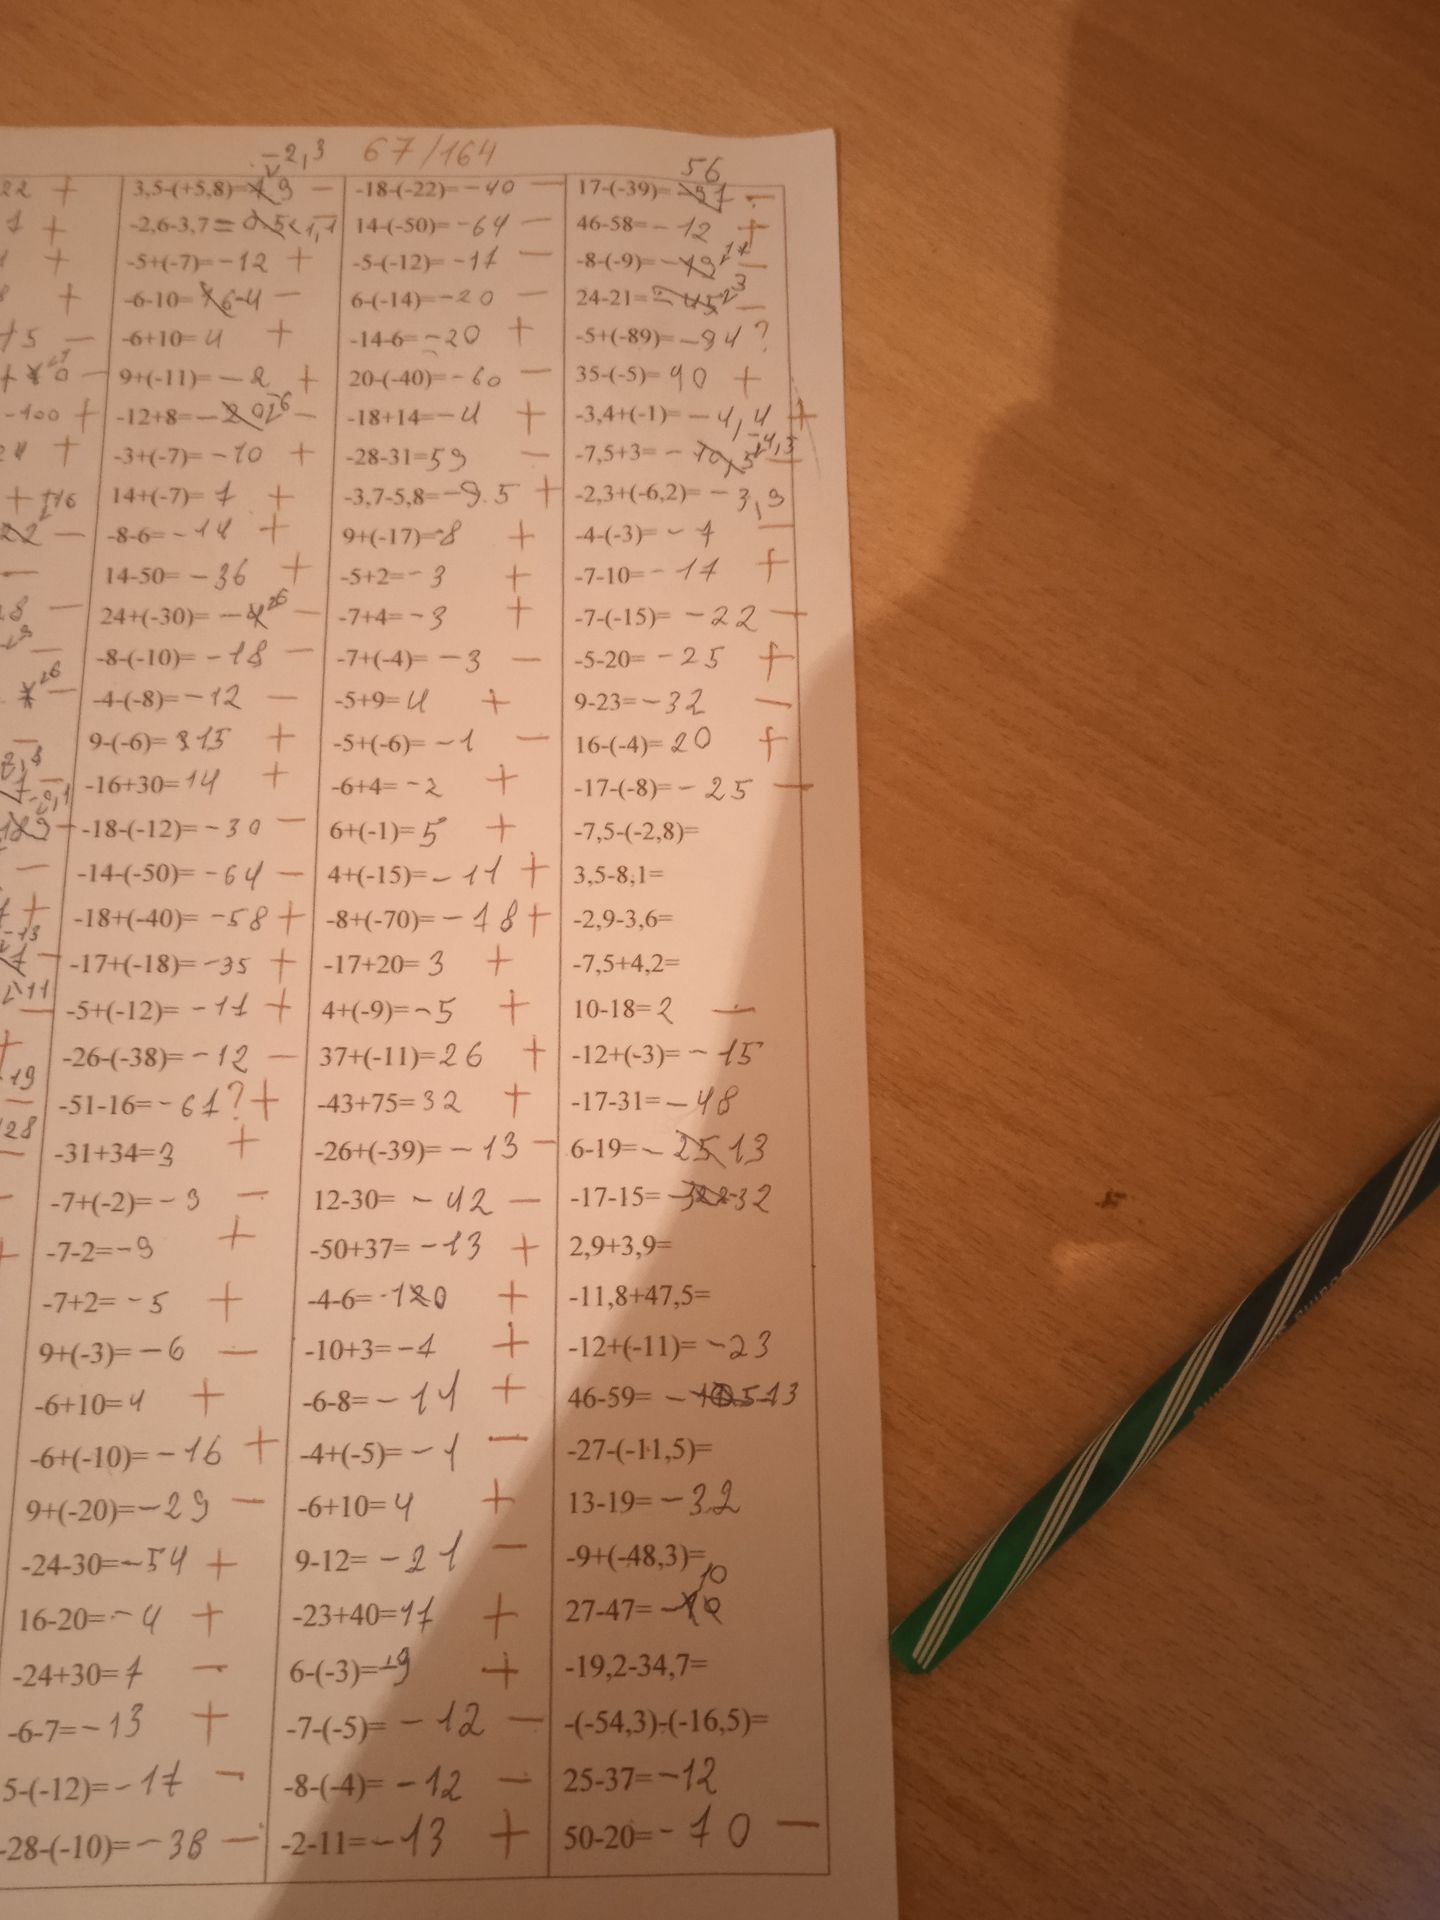 -2,3 67/164
56
22 + 3,5-(+5,8)= - -18-(-22)=-40 - 17-(-39)= -
7 + -2,6-3,7= -1,1 14-(-50)=-64 - 46-58=-12 +
+ -5+(-7)=-12 + -5-(-12)=-17 - -8-(-9)= -
8 + -6-10= -4 - 6-(-14)=-20 - 24-21= 3 -
+5 - -6+10=4 + -14-6=-20 + -5+(-89)=-94?
- 9+(-11)=-2 + 20-(-40)=-60 - 35-(-5)=90 +
-100 + -12+8= - -18+14=-4 + -3,4+(-1)=-4,4 +
24 + -3+(-7)=-10 + -28-31=59 - -7,5+3= -4,5 -
+ 14+(-7)=7 + -3,7-5,8=-9.5 + -2,3+(-6,2)=-3,9
22 - -8-6=-14 + 9+(-17)=-8 + -4-(-3)=-7 -
- 14-50=-36 + -5+2=-3 + -7-10=-17 +
8 - 24+(-30)= - -7+4=-3 + -7-(-15)=-22 -
- -8-(-10)=-18 - -7+(-4)=-3 - -5-20=-25 +
- -4-(-8)=-12 - -5+9=4 + 9-23=-32 -
- 9-(-6)=15 + -5+(-6)=-1 - 16-(-4)=20 +
- -16+30=14 + -6+4=-2 + -17-(-8)=-25 -
-18-(-12)=-30 - 6+(-1)=5 + -7,5-(-2,8)=
- -14-(-50)=-64 - 4+(-15)=-11 + 3,5-8,1=
+ -18+(-40)=-58 + -8+(-70)=-78 + -2,9-3,6=
-13
- -17+(-18)=-35 + -17+20=3 + -7,5+4,2=
-11
- -5+(-12)=-17 + 4+(-9)=-5 + 10-18=2 -
+ -26-(-38)=-12 - 37+(-11)=26 + -12+(-3)=-15
19
- -51-16=-67?+ -43+75=32 + -17-31=-48
28
- -31+34=3 + -26+(-39)=-13 - 6-19=- 13
- -7+(-2)=-9 - 12-30=-42 - -17-15= -32
+ -7-2=-9 + -50+37=-13 + 2,9+3,9=
-7+2=-5 + -4-6=-10 + -11,8+47,5=
9+(-3)=-6 - -10+3=-7 + -12+(-11)=-23
-6+10=4 + -6-8=-14 + 46-59= -13
-6+(-10)=-16 + -4+(-5)=-1 - -27-(-11,5)=
9+(-20)=-29 - -6+10=4 + 13-19=-32
-24-30=-54 + 9-12=-21 - -9+(-48,3)=
10
16-20=-4 + -23+40=17 + 27-47=
-24+30=7 - 6-(-3)=9 + -19,2-34,7=
-6-7=-13 + -7-(-5)=-12 - -(-54,3)-(-16,5)=
5-(-12)=-17 - -8-(-4)=-12 - 25-37=-12
-28-(-10)=-38 - -2-11=-13 + 50-20=-70 -